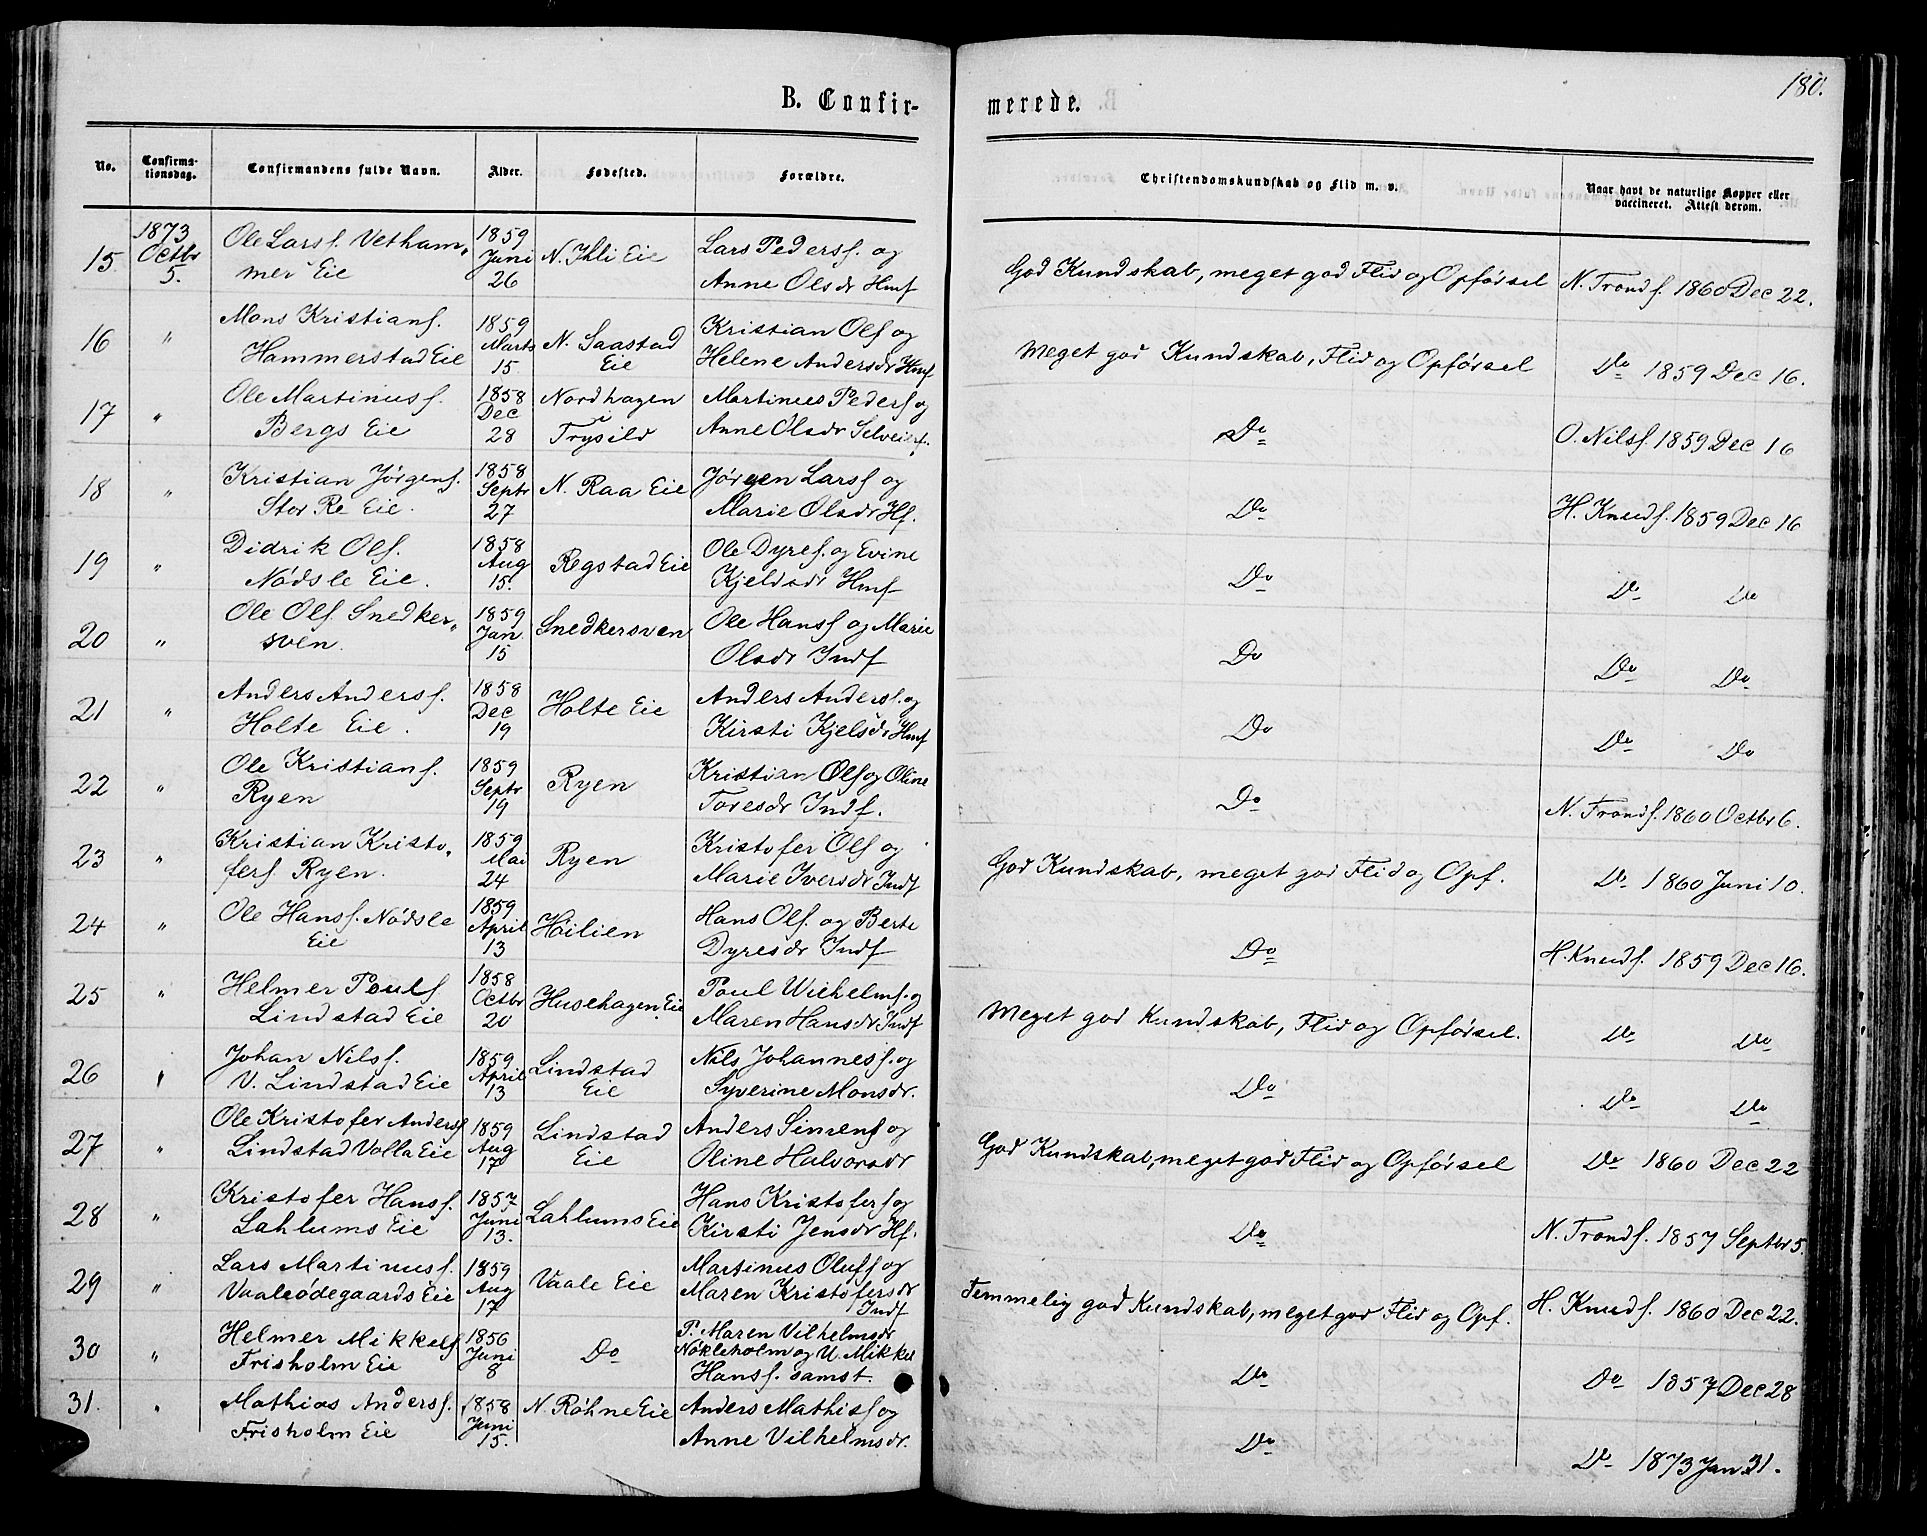 180.
B. Confirmerede.
No. Confirmationsdag. Confirmandens fulde Navn. Alder. Fødested. Forældre. Christendomskundskab og Flid m. v. Naar havt de naturlige Kopper eller vaccineret. Attest derom.
15 1873 Octbr 5. Ole Larsf. Vethammer Eie 1859 Juni 26 N. Ihli Eie Lars Pedersf. og Anne Olsdr Hmf God Kundskab, meget god Flid og Opførsel N. Trondf. 1860 Dec 22.
16 " Mons Kristianf. Hammerstad Eie 1859 Marts 15 N. Saastad Eie Kristian Olf og Helene Andersdr Hmf Meget god Kundskab, Flid og Opførsel Do 1859 Dec 16.
17 " Ole Martinusf. Bergs Eie 1858 Dec 28 Nordhagen i Trysild Martinus Pedersf og Anne Olsdr Selveierf. Do O. Nilsf. 1859 Dec 16
18 " Kristian Jørgensf. Stor Re Eie. 1858 Septr 27 N. Raa Eie Jørgen Larsf og Marie Olsdr Hf. Do H. Knudf. 1859 Dec 16
19 " Didrik Olf. Nødsle Eie. 1858 Aug 15. Regstad Eie Ole Dyref. og Evine Kjeldsdr Hmf Do Do Do
20 " Ole Olf. Snedkersven. 1859 Jan 15 Snedkersven Ole Hansf og Marie Olsdr Indf Do Do Do
21 " Anders Andersf. Holte Eie. 1858 Dec 19 Holte Eie Anders Andersf. og Kirsti Kjelsdr Hmf Do Do Do
22 " Ole Kristianf. Ryen 1859 Septr 19 Ryen Kristian Olf og Oline Toresdr Indf. Do N. Trondf. 1860 Octbr 6.
23 " Kristian Kristoferf Ryen. 1859 Mai 24 Ryen Kristofer Olf og Marie Iversdr Indf God Kundskab, meget god Flid og Opf. Do 1860 Juni 10.
24 " Ole Hansf. Nødsle Eie 1859 April 13 Høilien Hans Olf. og Berte Dyresdr Indf Do H. Knudf. 1859 Dec 16.
25 " Helmer Poulf Lindstad Eie 1858 Octbr 20 Husehagen Eie Poul Wilhelmf. og Maren Hansdr Indf Meget god Kundskab, Flid og Opførsel. Do Do
26 " Johan Nilsf. V. Lindstad Eie 1859 April 13 Lindstad Eie Nils Johannesf. og Syverine Monsdr. Do Do Do
27 " Ole Kristofer Andersf Lindstad Volla Eie 1859 Aug 17 Lindstad Eie Anders Simenf og Oline Halvorsdr God Kundskab, meget god Flid og Opførsel Do 1860 Dec 22
28 " Kristofer Hansf. Lahlums Eie 1857 Juni 13. Lahlums Eie Hans Kristoferf og Kirsti Jensdr Hf. Do N. Trondf. 1857 Septbr 5.
29 " Lars Martinusf. Vaaleødegaards Eie 1859 Aug 17 Vaale Eie Martinus Oluff og Maren Kristofersdr Indf Temmelig god Kundskab, meget god Flid og Opf. H. Knudf. 1860 Dec 22.
30 " Helmer Mikkelf Frisholm Eie 1856 Juni 8 Do P. Maren Vilhelmsdr Nøkleholm og U. Mikkel Hansf. samst. Do Do 1857 Dec 28
31. " Mathias Andersf. Frisholm Eie 1858 Juni 15. N. Røhne Eie Anders Mathisf og Anne Vilhelmsdr. Do Do 1873 Jan 31.